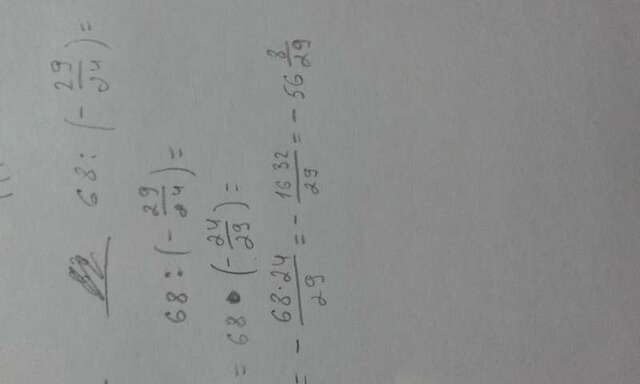 68 : (- 29/24) =
68 : (- 29/24) =
= 68 · (- 24/29) =
= - 68·24/29 = - 1632/29 = - 56 8/29